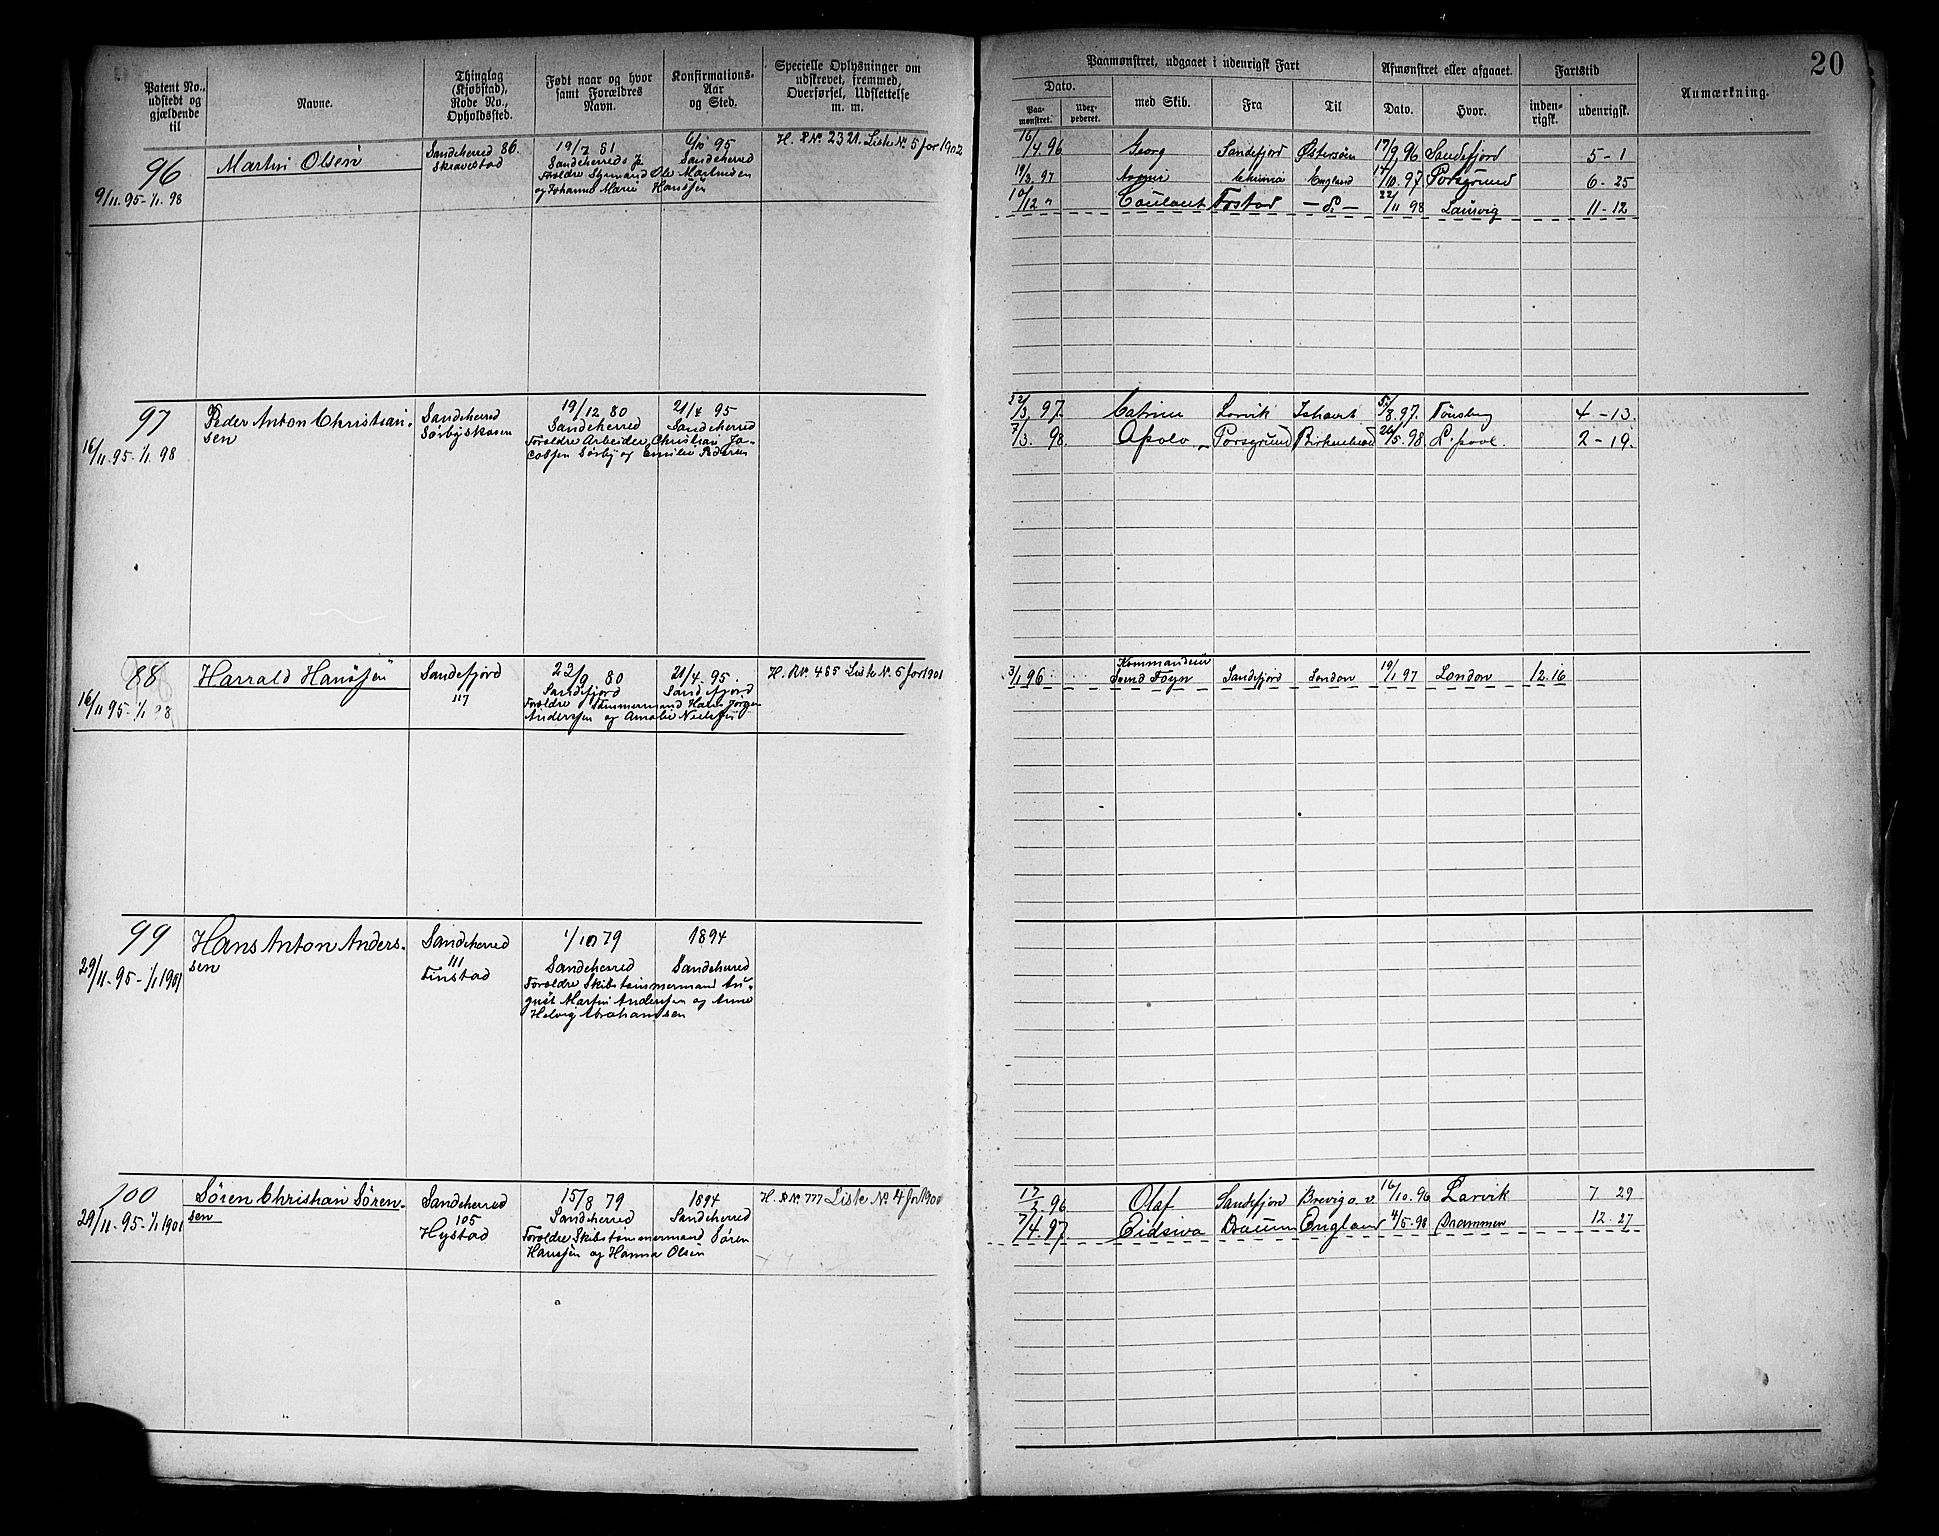 20
Patent No., udstedt og gjældende til
Navne.
Thinglag (Kjøbstad), Rode No., Opholdssted.
Født naar og hvor samt Forældres Navn.
Konfirmations- Aar og Sted.
Specielle Oplysninger om udskrevet, fremmed, Overførsel, Udslettelse m. m.
Paamønstret, udgaaet i udenrigsk Fart
Dato.
Paa- mønstret.
udex- pederet.
med Skib.
Fra
Til
Afmønstret eller afgaaet.
Dato.
Hvor.
Fartstid
inden- rigsk.
udenrigsk.
Anmærkning.
96
9/11. 95 - 1/1. 98
Martin Olsen
Sandeherred 86.
Skravestad
Sandeherreds
Forældre Styrmand Ole Martinsen
og Johanne Marie Hansen
6/10 95
Sandeherred
H. P No. 2321. Liste No. 5 for 1902
16/4. 96 Georg Sandefjord Østersøen 17/9 96 Sandefjord 5-1
19/3. 97 England 14/10. 97 Porsgrund 6-25
10/12 " Fostad - d. - 22/11 98 Laurvig 11-12
97
16/11. 95 - 1/1. 98
Peder Anton Christian-
sen
Sandeherred
Sørbyskasen
19/12 80
Sandeherred
Forældre Arbeider Christian Ja-
cobsen Sørby og Emilie Pedersen
21/4 95
Sandeherred
22/3. 97. Catrine Larvik 5/8. 97. Tønsberg 4-13.
7/3. 98. Apolo Porsgrund Birkenhead 26/5. 98 L.pool 2-19.
98
16/11 95 - 1/1 98
Harrald Hansen
Sandefjord
117
22/9 80
Sandefjord
Forældre Tømmermand Hans Jørgen
Anderssen og Amalie Nielsen
21/4. 95.
Sandefjord
H. R No. 465 Liste No. 5 for 1901
3/1 96 Kommandeur Svend Foyn Sandefjord London 19/1 97 London 12.16
99
29/11. 95 - 1/1 1901
Hans Anton Anders-
sen
Sandeherred
111
Finstad
1/10 79
Sandeherred
Forældre Skibstømmermand Au-
gust Martin Anderssen og Anne
Helvig Abrahamsen
1894
Sandeherred
100
29/11. 95 - 1/1 1901
Søren Christian Søren-
sen
Sandeherred
105
Hystad
15/8 79
Sandeherred
Forældre Skibstømmermand Søren
Hanssen og Hanna Olsen
1894
Sandeherred
H. R No. 777 Liste No 4 for 1900
17/2. 96 Olaf Sandefjord Brevig o. v. 16/10. 96 Larvik 7. 29
7/4. 97. Eidsiva England 4/5. 98 Drammen 12. 27